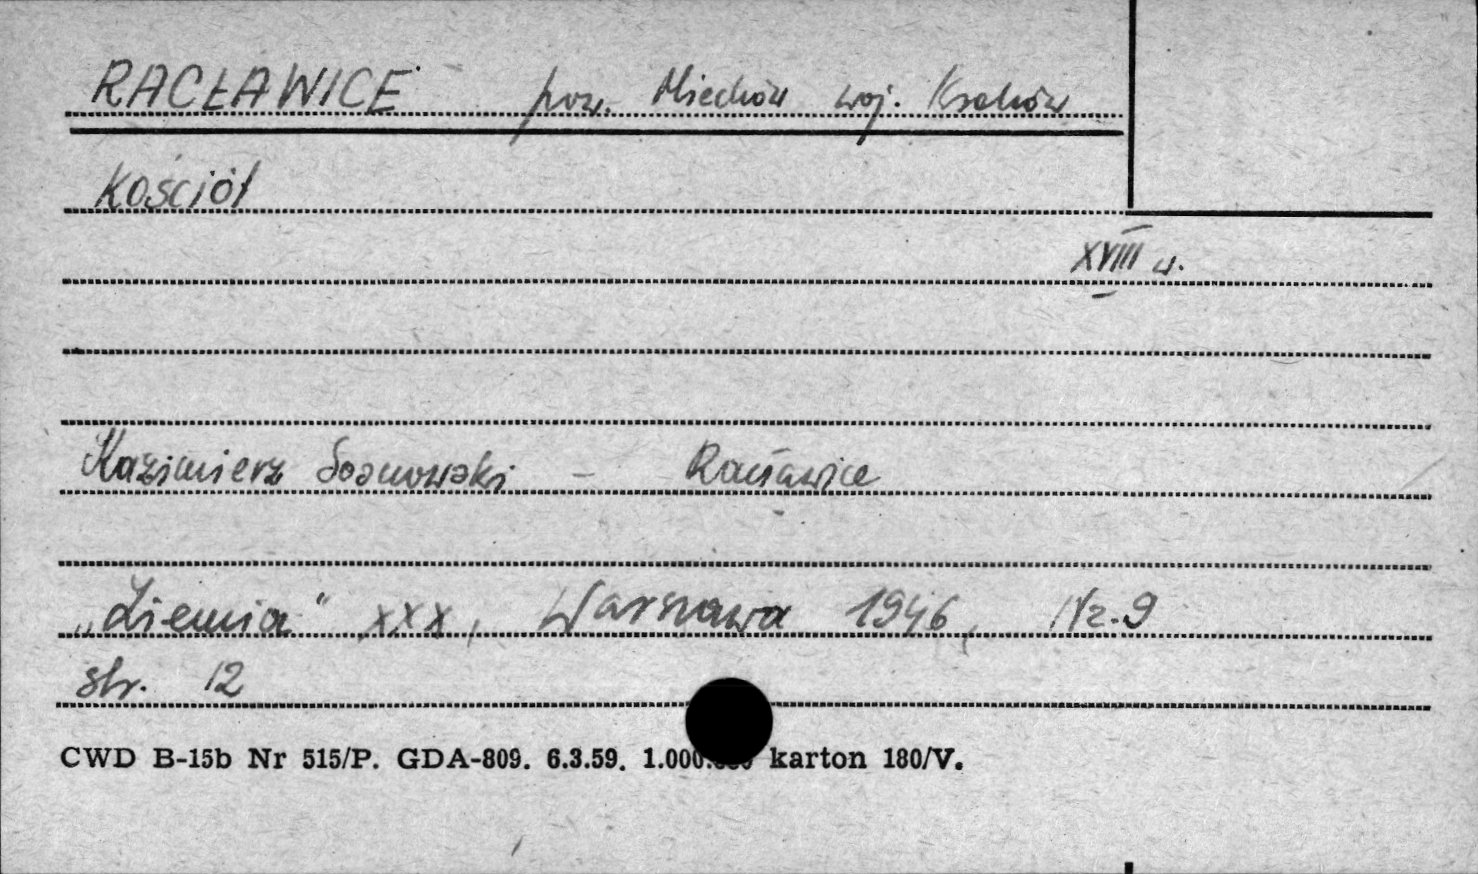 RACŁAWICE pow. Miechów woj. Kraków
Kościół
XVIII w.
Kazimierz Sosnowski – Racławice
„Ziemia" XXX, Warszawa 1946, Nr. 9
str. 12
CWD B-15b Nr 515/P. GDA-809. 6.3.59. karton 180/V.